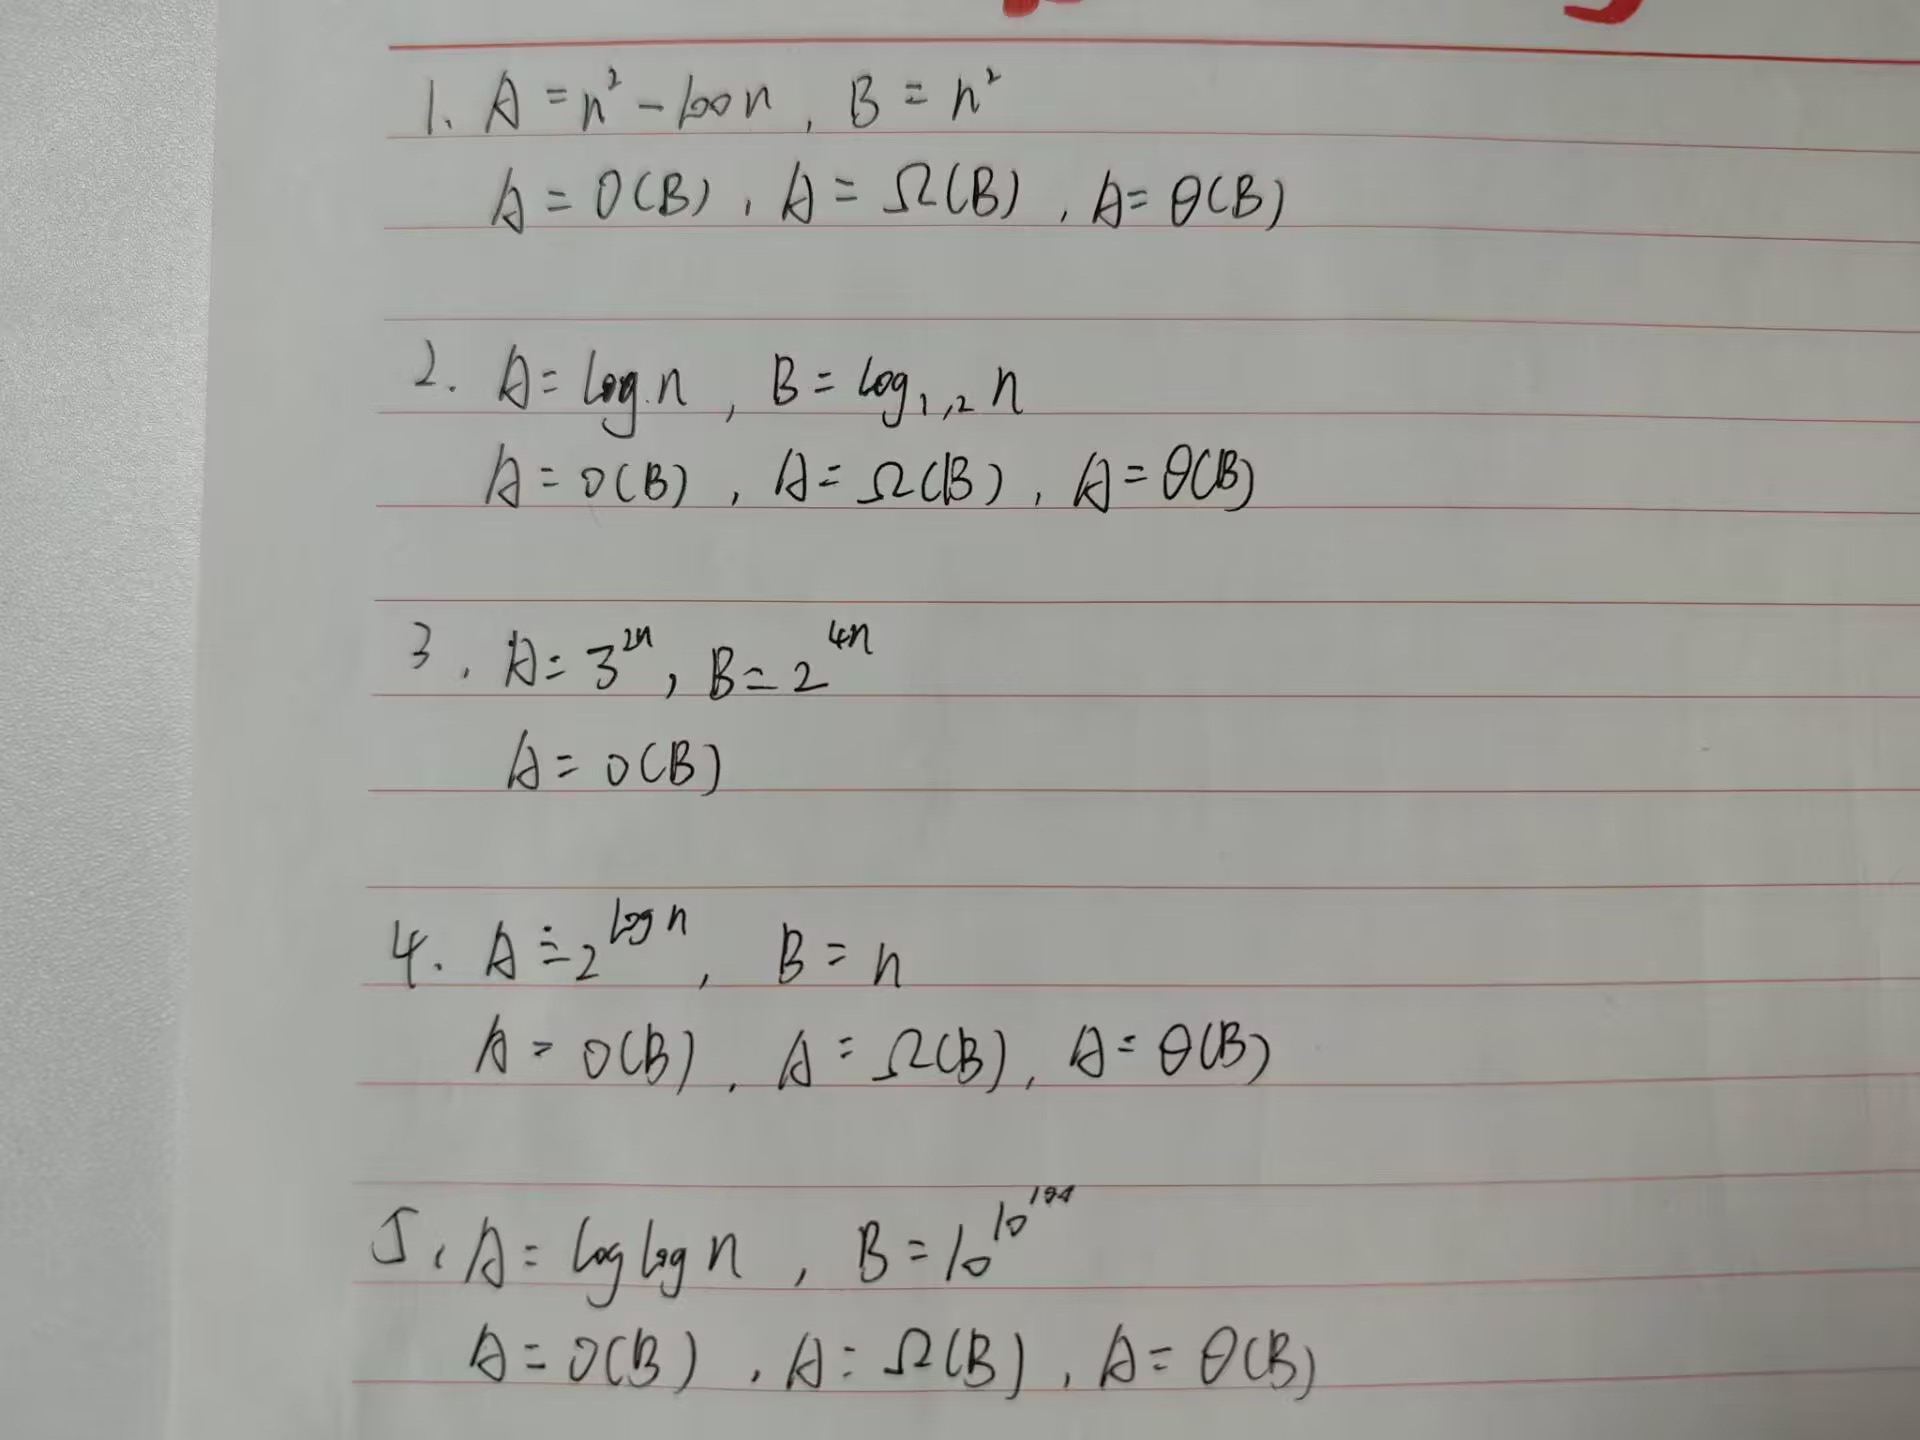 1. A = n² - 100n, B = n²
A = O(B), A = Ω(B), A = θ(B)
2. A = log n, B = log₁,₂ n
A = O(B), A = Ω(B), A = θ(B)
3. A = 3²ⁿ, B = 2⁴ⁿ
A = O(B)
4. A = 2^log n, B = n
A = O(B), A = Ω(B), A = θ(B)
5. A = log log n, B = 10^10^100
A = O(B), A = Ω(B), A = θ(B)